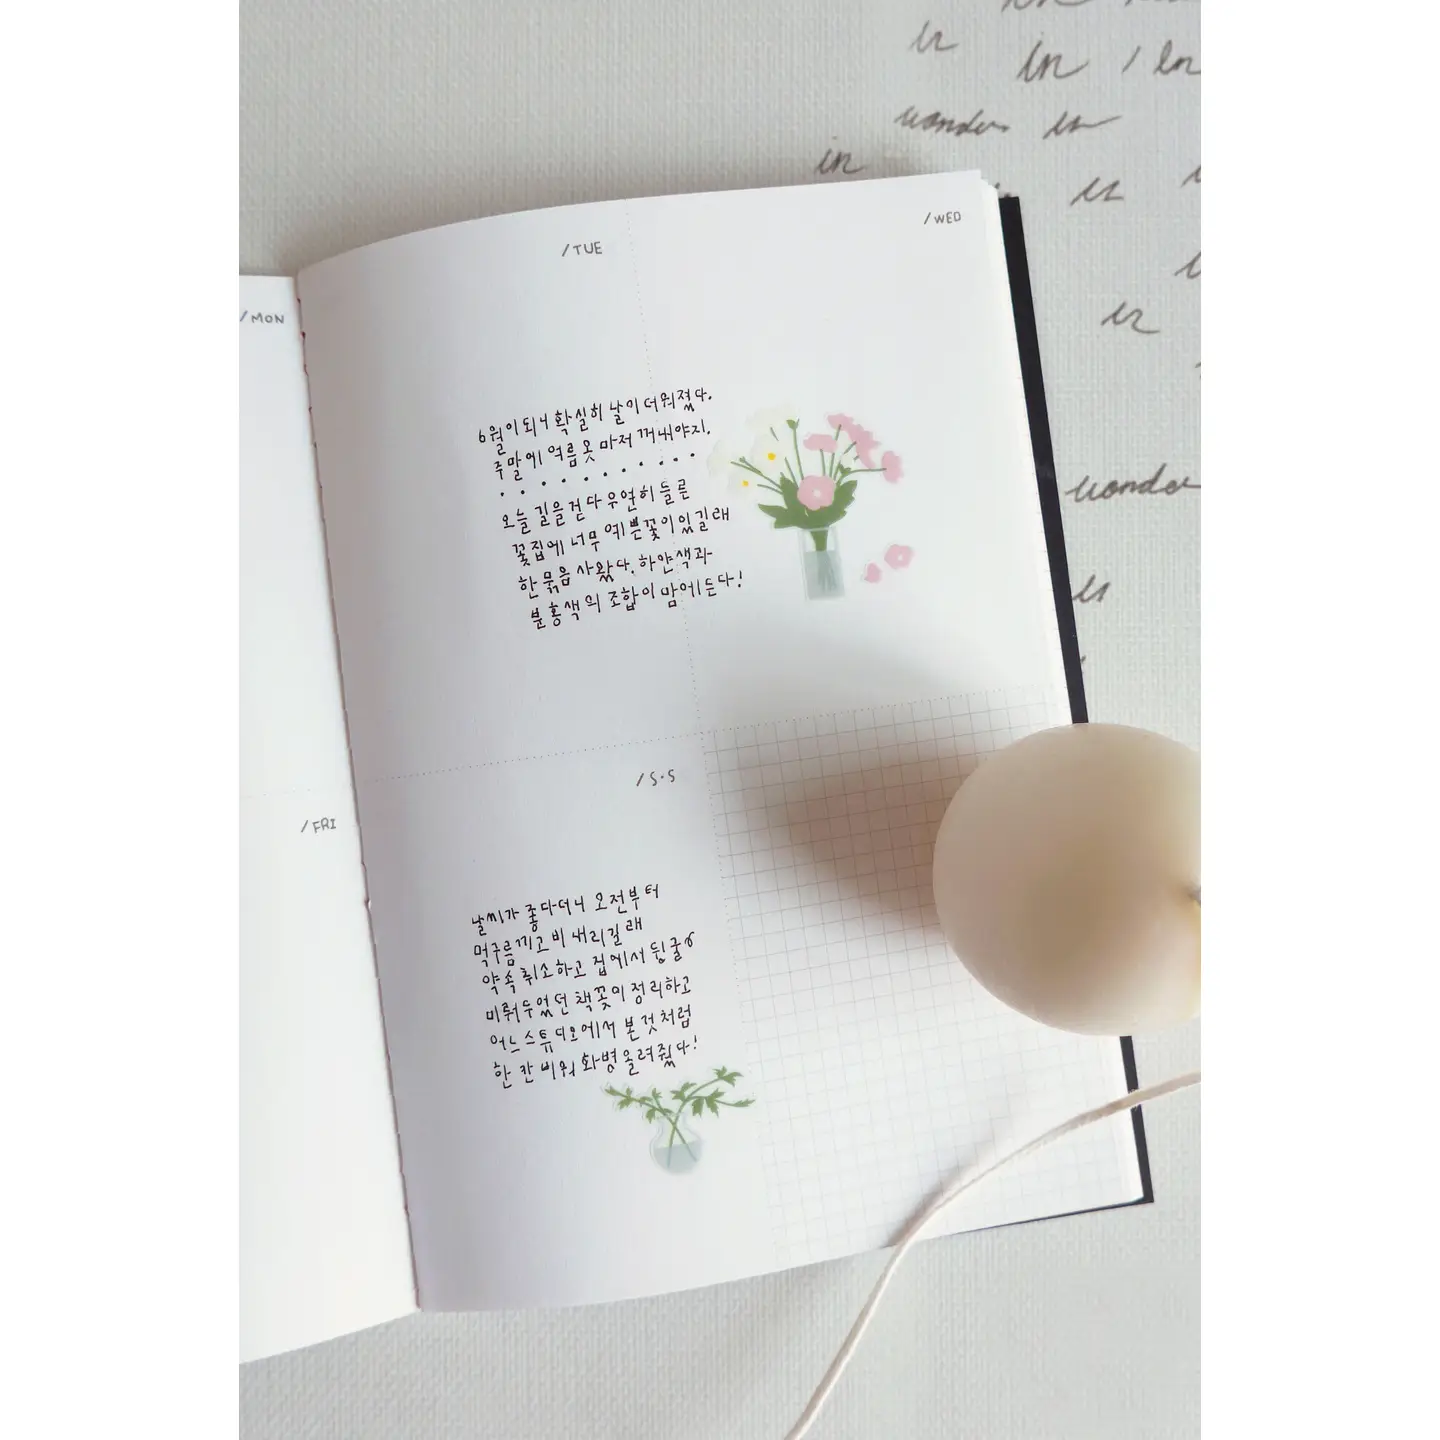 in
wonder in
in / in
in
in
in
wonder
in
/MON
/TUE
/WED
6월이 되니 확실히 날이 더워졌다.
주말에 여름옷 마저 꺼내야지.
오늘 길을 걷다 우연히 들른
꽃집에 너무 예쁜 꽃이 있길래
한 묶음 사왔다. 하얀색과
분홍색의 조합이 맘에 든다!
/FRI
/S·S
날씨가 좋다더니 오전부터
먹구름끼고 비 내리길래
약속 취소하고 집에서 뒹굴~
미뤄두었던 책꽂이 정리하고
어느 스튜디오에서 본 것처럼
한 칸 비워 화병 올려줬다!